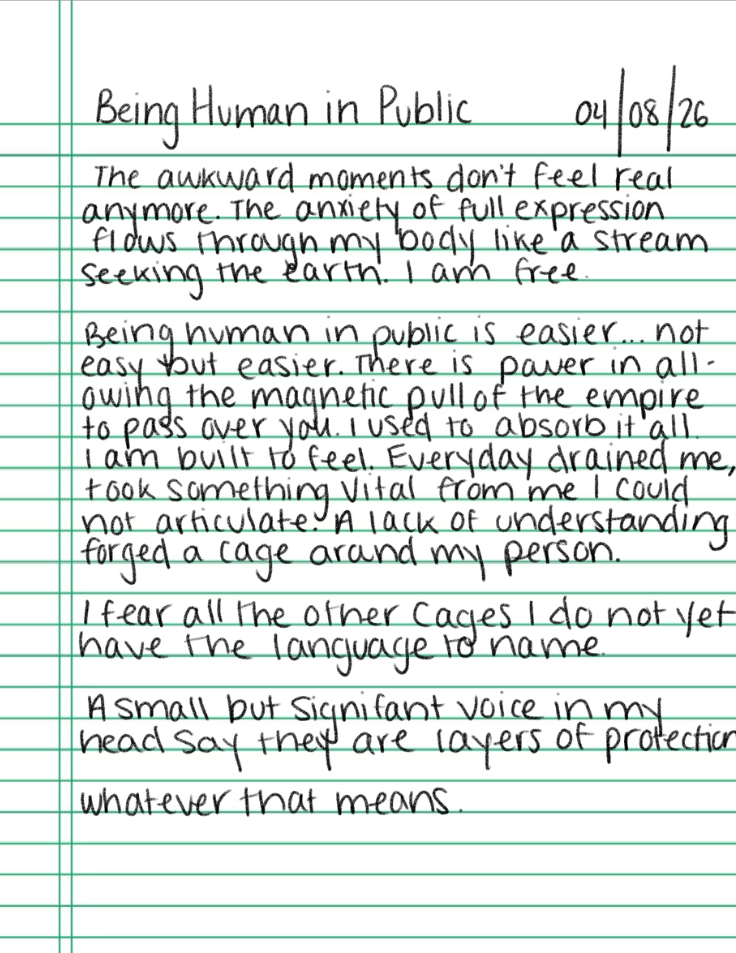 Being Human in Public 04/08/26
The awkward moments don't feel real
anymore. The anxiety of full expression
flows through my body like a stream
seeking the earth. I am free.
Being human in public is easier... not
easy but easier. There is power in all-
owing the magnetic pull of the empire
to pass over you. I used to absorb it all.
I am built to feel. Everyday drained me,
took something vital from me I could
not articulate. A lack of understanding
forged a cage around my person.
I fear all the other cages I do not yet
have the language to name.
A small but signifant voice in my
head say they are layers of protection
whatever that means.